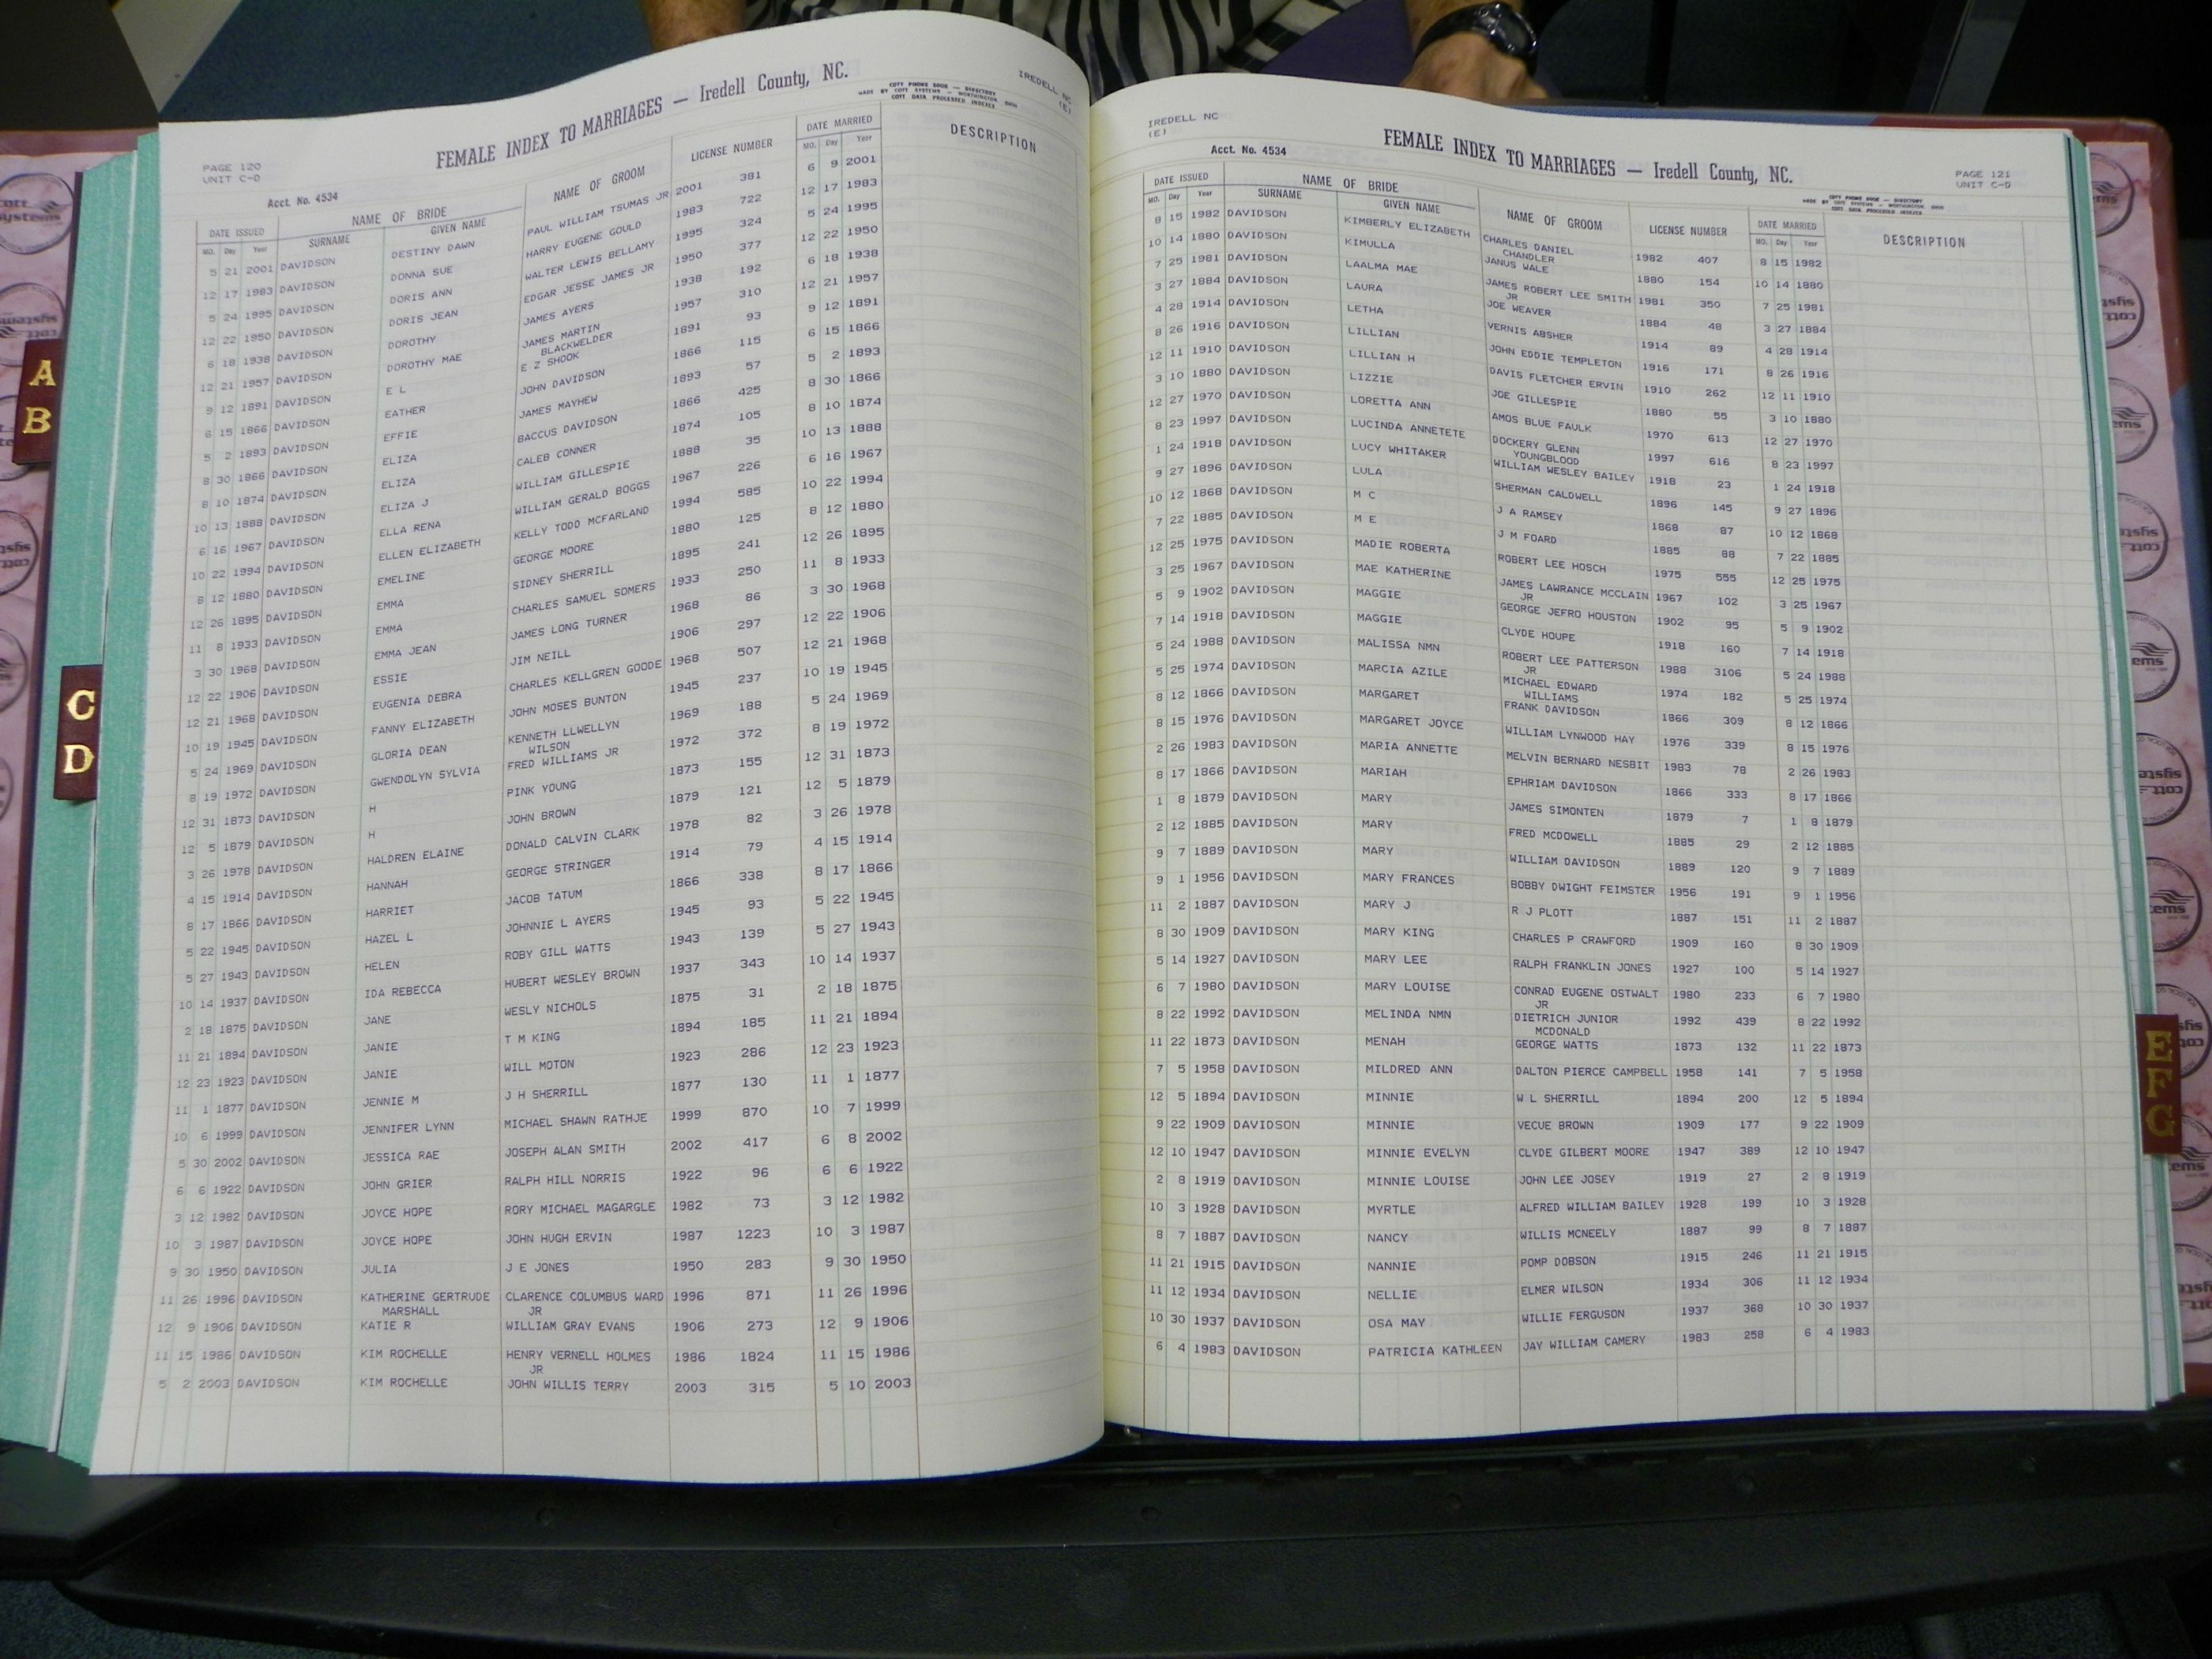 FEMALE INDEX TO MARRIAGES — Iredell County, NC.
IREDELL NC
(E)
COTT PHONE BOOK — DIRECTORY
MADE BY COTT SYSTEMS — WORTHINGTON OHIO
COTT DATA PROCESSED INDEXES
PAGE 120
UNIT C-D
Acct. No. 4534
DATE ISSUED NAME OF BRIDE NAME OF GROOM LICENSE NUMBER DATE MARRIED DESCRIPTION
MO. Day Year SURNAME GIVEN NAME MO. Day Year
5 21 2001 DAVIDSON DESTINY DAWN PAUL WILLIAM TSUMAS JR 2001 381 6 9 2001
12 17 1983 DAVIDSON DONNA SUE HARRY EUGENE GOULD 1983 722 12 17 1983
5 24 1995 DAVIDSON DORIS ANN WALTER LEWIS BELLAMY 1995 324 5 24 1995
12 22 1950 DAVIDSON DORIS JEAN EDGAR JESSE JAMES JR 1950 377 12 22 1950
6 18 1938 DAVIDSON DOROTHY JAMES AYERS 1938 192 6 18 1938
12 21 1957 DAVIDSON DOROTHY MAE JAMES MARTIN 1957 310 12 21 1957
BLACKWELDER
9 12 1891 DAVIDSON E L E Z SHOOK 1891 93 9 12 1891
6 15 1866 DAVIDSON EATHER JOHN DAVIDSON 1866 115 6 15 1866
5 2 1893 DAVIDSON EFFIE JAMES MAYHEW 1893 57 5 2 1893
8 30 1866 DAVIDSON ELIZA BACCUS DAVIDSON 1866 425 8 30 1866
8 10 1874 DAVIDSON ELIZA CALEB CONNER 1874 105 8 10 1874
10 13 1888 DAVIDSON ELIZA J WILLIAM GILLESPIE 1888 35 10 13 1888
6 16 1967 DAVIDSON ELLA RENA WILLIAM GERALD BOGGS 1967 226 6 16 1967
10 22 1994 DAVIDSON ELLEN ELIZABETH KELLY TODD MCFARLAND 1994 585 10 22 1994
8 12 1880 DAVIDSON EMELINE GEORGE MOORE 1880 125 8 12 1880
12 26 1895 DAVIDSON EMMA SIDNEY SHERRILL 1895 241 12 26 1895
11 8 1933 DAVIDSON EMMA CHARLES SAMUEL SOMERS 1933 250 11 8 1933
3 30 1968 DAVIDSON EMMA JEAN JAMES LONG TURNER 1968 86 3 30 1968
12 22 1906 DAVIDSON ESSIE JIM NEILL 1906 297 12 22 1906
12 21 1968 DAVIDSON EUGENIA DEBRA CHARLES KELLGREN GOODE 1968 507 12 21 1968
10 19 1945 DAVIDSON FANNY ELIZABETH JOHN MOSES BUNTON 1945 237 10 19 1945
5 24 1969 DAVIDSON GLORIA DEAN KENNETH LLWELLYN 1969 188 5 24 1969
WILSON
8 19 1972 DAVIDSON GWENDOLYN SYLVIA FRED WILLIAMS JR 1972 372 8 19 1972
12 31 1873 DAVIDSON H PINK YOUNG 1873 155 12 31 1873
12 5 1879 DAVIDSON H JOHN BROWN 1879 121 12 5 1879
3 26 1978 DAVIDSON HALDREN ELAINE DONALD CALVIN CLARK 1978 82 3 26 1978
4 15 1914 DAVIDSON HANNAH GEORGE STRINGER 1914 79 4 15 1914
8 17 1866 DAVIDSON HARRIET JACOB TATUM 1866 338 8 17 1866
5 22 1945 DAVIDSON HAZEL L JOHNNIE L AYERS 1945 93 5 22 1945
5 27 1943 DAVIDSON HELEN ROBY GILL WATTS 1943 139 5 27 1943
10 14 1937 DAVIDSON IDA REBECCA HUBERT WESLEY BROWN 1937 343 10 14 1937
2 18 1875 DAVIDSON JANE WESLY NICHOLS 1875 31 2 18 1875
11 21 1894 DAVIDSON JANIE T M KING 1894 185 11 21 1894
12 23 1923 DAVIDSON JANIE WILL MOTON 1923 286 12 23 1923
11 1 1877 DAVIDSON JENNIE M J H SHERRILL 1877 130 11 1 1877
10 6 1999 DAVIDSON JENNIFER LYNN MICHAEL SHAWN RATHJE 1999 870 10 7 1999
5 30 2002 DAVIDSON JESSICA RAE JOSEPH ALAN SMITH 2002 417 6 8 2002
6 6 1922 DAVIDSON JOHN GRIER RALPH HILL NORRIS 1922 96 6 6 1922
3 12 1982 DAVIDSON JOYCE HOPE RORY MICHAEL MAGARGLE 1982 73 3 12 1982
10 3 1987 DAVIDSON JOYCE HOPE JOHN HUGH ERVIN 1987 1223 10 3 1987
9 30 1950 DAVIDSON JULIA J E JONES 1950 283 9 30 1950
11 26 1996 DAVIDSON KATHERINE GERTRUDE CLARENCE COLUMBUS WARD 1996 871 11 26 1996
MARSHALL JR
12 9 1906 DAVIDSON KATIE R WILLIAM GRAY EVANS 1906 273 12 9 1906
11 15 1986 DAVIDSON KIM ROCHELLE HENRY VERNELL HOLMES 1986 1824 11 15 1986
JR
5 2 2003 DAVIDSON KIM ROCHELLE JOHN WILLIS TERRY 2003 315 5 10 2003
IREDELL NC
(E)
Acct. No. 4534
FEMALE INDEX TO MARRIAGES — Iredell County, NC.
PAGE 121
UNIT C-D
COTT PHONE BOOK — DIRECTORY
MADE BY COTT SYSTEMS — WORTHINGTON OHIO
COTT DATA PROCESSED INDEXES
DATE ISSUED NAME OF BRIDE NAME OF GROOM LICENSE NUMBER DATE MARRIED DESCRIPTION
MO. Day Year SURNAME GIVEN NAME MO. Day Year
8 15 1982 DAVIDSON KIMBERLY ELIZABETH CHARLES DANIEL 1982 407 8 15 1982
CHANDLER
10 14 1880 DAVIDSON KIMULLA JANUS WALE 1880 154 10 14 1880
7 25 1981 DAVIDSON LAALMA MAE JAMES ROBERT LEE SMITH 1981 350 7 25 1981
JR
3 27 1884 DAVIDSON LAURA JOE WEAVER 1884 48 3 27 1884
4 28 1914 DAVIDSON LETHA VERNIS ABSHER 1914 89 4 28 1914
8 26 1916 DAVIDSON LILLIAN JOHN EDDIE TEMPLETON 1916 171 8 26 1916
12 11 1910 DAVIDSON LILLIAN H DAVIS FLETCHER ERVIN 1910 262 12 11 1910
3 10 1880 DAVIDSON LIZZIE JOE GILLESPIE 1880 55 3 10 1880
12 27 1970 DAVIDSON LORETTA ANN AMOS BLUE FAULK 1970 613 12 27 1970
8 23 1997 DAVIDSON LUCINDA ANNETETE DOCKERY GLENN 1997 616 8 23 1997
YOUNGBLOOD
1 24 1918 DAVIDSON LUCY WHITAKER WILLIAM WESLEY BAILEY 1918 23 1 24 1918
9 27 1896 DAVIDSON LULA SHERMAN CALDWELL 1896 145 9 27 1896
10 12 1868 DAVIDSON M C J A RAMSEY 1868 87 10 12 1868
7 22 1885 DAVIDSON M E J M FOARD 1885 88 7 22 1885
12 25 1975 DAVIDSON MADIE ROBERTA ROBERT LEE HOSCH 1975 555 12 25 1975
3 25 1967 DAVIDSON MAE KATHERINE JAMES LAWRANCE MCCLAIN 1967 102 3 25 1967
JR
5 9 1902 DAVIDSON MAGGIE GEORGE JEFRO HOUSTON 1902 95 5 9 1902
7 14 1918 DAVIDSON MAGGIE CLYDE HOUPE 1918 160 7 14 1918
5 24 1988 DAVIDSON MALISSA NMN ROBERT LEE PATTERSON 1988 3106 5 24 1988
JR
5 25 1974 DAVIDSON MARCIA AZILE MICHAEL EDWARD 1974 182 5 25 1974
WILLIAMS
8 12 1866 DAVIDSON MARGARET FRANK DAVIDSON 1866 309 8 12 1866
8 15 1976 DAVIDSON MARGARET JOYCE WILLIAM LYNWOOD HAY 1976 339 8 15 1976
2 26 1983 DAVIDSON MARIA ANNETTE MELVIN BERNARD NESBIT 1983 78 2 26 1983
8 17 1866 DAVIDSON MARIAH EPHRIAM DAVIDSON 1866 333 8 17 1866
1 8 1879 DAVIDSON MARY JAMES SIMONTEN 1879 7 1 8 1879
2 12 1885 DAVIDSON MARY FRED MCDOWELL 1885 29 2 12 1885
9 7 1889 DAVIDSON MARY WILLIAM DAVIDSON 1889 120 9 7 1889
9 1 1956 DAVIDSON MARY FRANCES BOBBY DWIGHT FEIMSTER 1956 191 9 1 1956
11 2 1887 DAVIDSON MARY J R J PLOTT 1887 151 11 2 1887
8 30 1909 DAVIDSON MARY KING CHARLES P CRAWFORD 1909 160 8 30 1909
5 14 1927 DAVIDSON MARY LEE RALPH FRANKLIN JONES 1927 100 5 14 1927
6 7 1980 DAVIDSON MARY LOUISE CONRAD EUGENE OSTWALT 1980 233 6 7 1980
JR
8 22 1992 DAVIDSON MELINDA NMN DIETRICH JUNIOR 1992 439 8 22 1992
MCDONALD
11 22 1873 DAVIDSON MENAH GEORGE WATTS 1873 132 11 22 1873
7 5 1958 DAVIDSON MILDRED ANN DALTON PIERCE CAMPBELL 1958 141 7 5 1958
12 5 1894 DAVIDSON MINNIE W L SHERRILL 1894 200 12 5 1894
9 22 1909 DAVIDSON MINNIE VECUE BROWN 1909 177 9 22 1909
12 10 1947 DAVIDSON MINNIE EVELYN CLYDE GILBERT MOORE 1947 389 12 10 1947
2 8 1919 DAVIDSON MINNIE LOUISE JOHN LEE JOSEY 1919 27 2 8 1919
10 3 1928 DAVIDSON MYRTLE ALFRED WILLIAM BAILEY 1928 199 10 3 1928
8 7 1887 DAVIDSON NANCY WILLIS MCNEELY 1887 99 8 7 1887
11 21 1915 DAVIDSON NANNIE POMP DOBSON 1915 246 11 21 1915
11 12 1934 DAVIDSON NELLIE ELMER WILSON 1934 306 11 12 1934
10 30 1937 DAVIDSON OSA MAY WILLIE FERGUSON 1937 368 10 30 1937
6 4 1983 DAVIDSON PATRICIA KATHLEEN JAY WILLIAM CAMERY 1983 258 6 4 1983
A
B
C
D
E
F
G